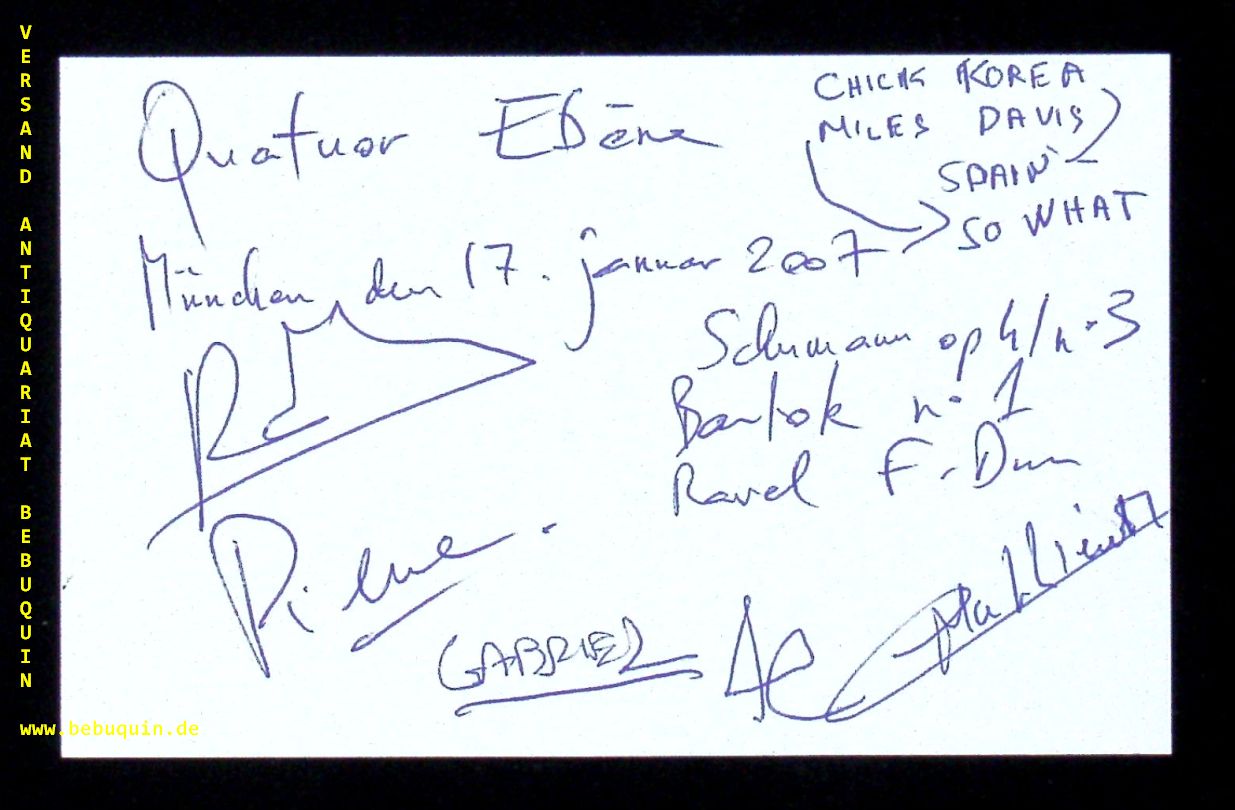 VERSAND ANTIQUARIAT BEBUQUIN
www.bebuquin.de
Quatuor Ebène
CHICK KOREA
MILES DAVIS
SPAIN
SO WHAT
München, den 17. januar 2007
Schumann op 41/n°3
Bartok n°1
Ravel F-Dur
Pierre
GABRIEL
Mathieu